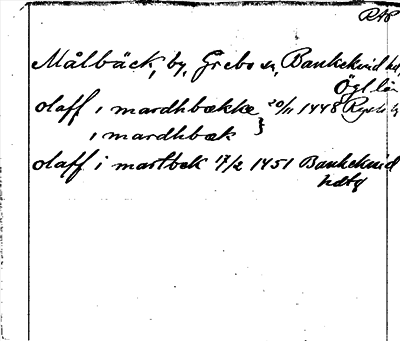 RAP
Målbäck, by, Grebo sn, Bankekind hd,
Ögl. län
olaff i mardhbække 20/11 1448
i mardhbæk }
olaff i martbek 17/2 1451 Bankekind
hdtg